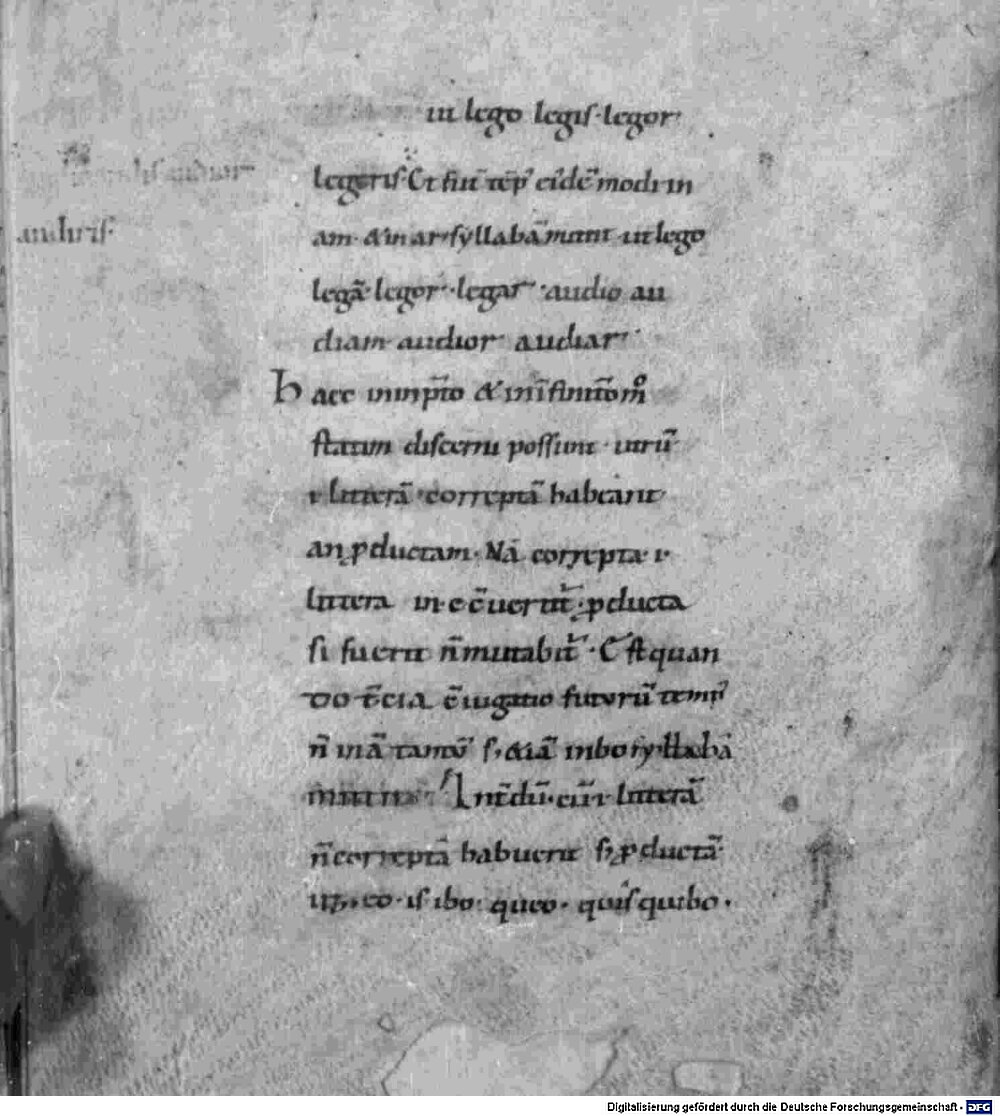 ut lego legis·legor
legeris·Et fut̄ tēp̄ eidē modi in
audiris·
am·&in ar·syllabā mittit ut lego
legā·legor·legar·audio au
diam audior audiar
Haec in inp̄to & in īfinitom̊
statim discerni possunt·utrū
i litterā·correptā habeant
an ꝓductam·Nā correpta·i·
littera in·e·c̄uertit̄·ꝓducta
si fuerit n̄ mutabit̄·Ē ꝗ quan
do t̄cia c̄iugatio futurū temp̄
n̄ in ā tantū s; &iā in bo syllabā
mittit Interdū·cū·i·litterā
n̄ correptā habuerit s; ꝓductā
ut; eo·is ibo·queo·quis quibo·
Digitalisierung gefördert durch die Deutsche Forschungsgemeinschaft - DFG